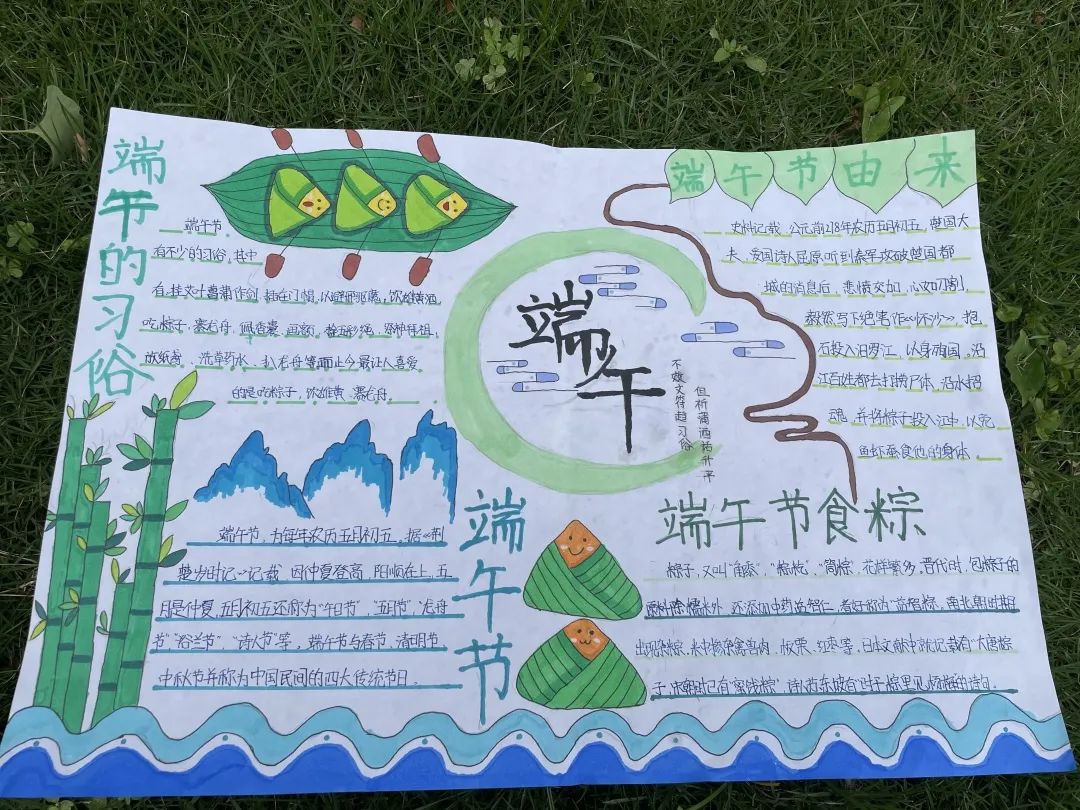 端午的习俗
端午节
有不少的习俗，其中
有：挂艾叶菖蒲作剑，插在门楣，以避邪驱瘴，饮雄黄酒
吃粽子，赛龙舟，佩香囊，画额，拴五彩绳，祭神拜祖，
放纸鸢，洗草药水，扒龙舟等而止今最让人喜爱
的是吃粽子，饮雄黄，赛龙舟。
端午节由来
史料记载，公元前278年农历五月初五，楚国大
夫、爱国诗人屈原听到秦军攻破楚国都
城的消息后，悲愤交加，心如刀割，
毅然写下绝笔作《怀沙》，抱
石投入汨罗江，以身殉国，沿
江百姓都去打捞尸体，沿水招
魂，并将粽子投入江中，以免
鱼虾蚕食他的身体
端午
不效艾符趋习俗
但祈蒲酒话升平
端午节，为每年农历五月初五，据《荆
楚岁时记》记载，因仲夏登高，阳顺在上，五
月是仲夏，五月初五还称为“午日节”，“五月节”，“龙舟
节”“浴兰节”，“诗人节”等，端午节与春节、清明节、
中秋节并称为中国民间的四大传统节日。
端午节
端午节食粽
粽子，又叫“角黍”，“筒粽”，花样繁多，晋代时，包粽子的
原料除糯米外，还添加中药益智仁，煮好称为“益智粽，南北朝时期
出现杂粽，米中掺杂禽兽肉、板栗、红枣等，日本文献中就记载有“大唐粽